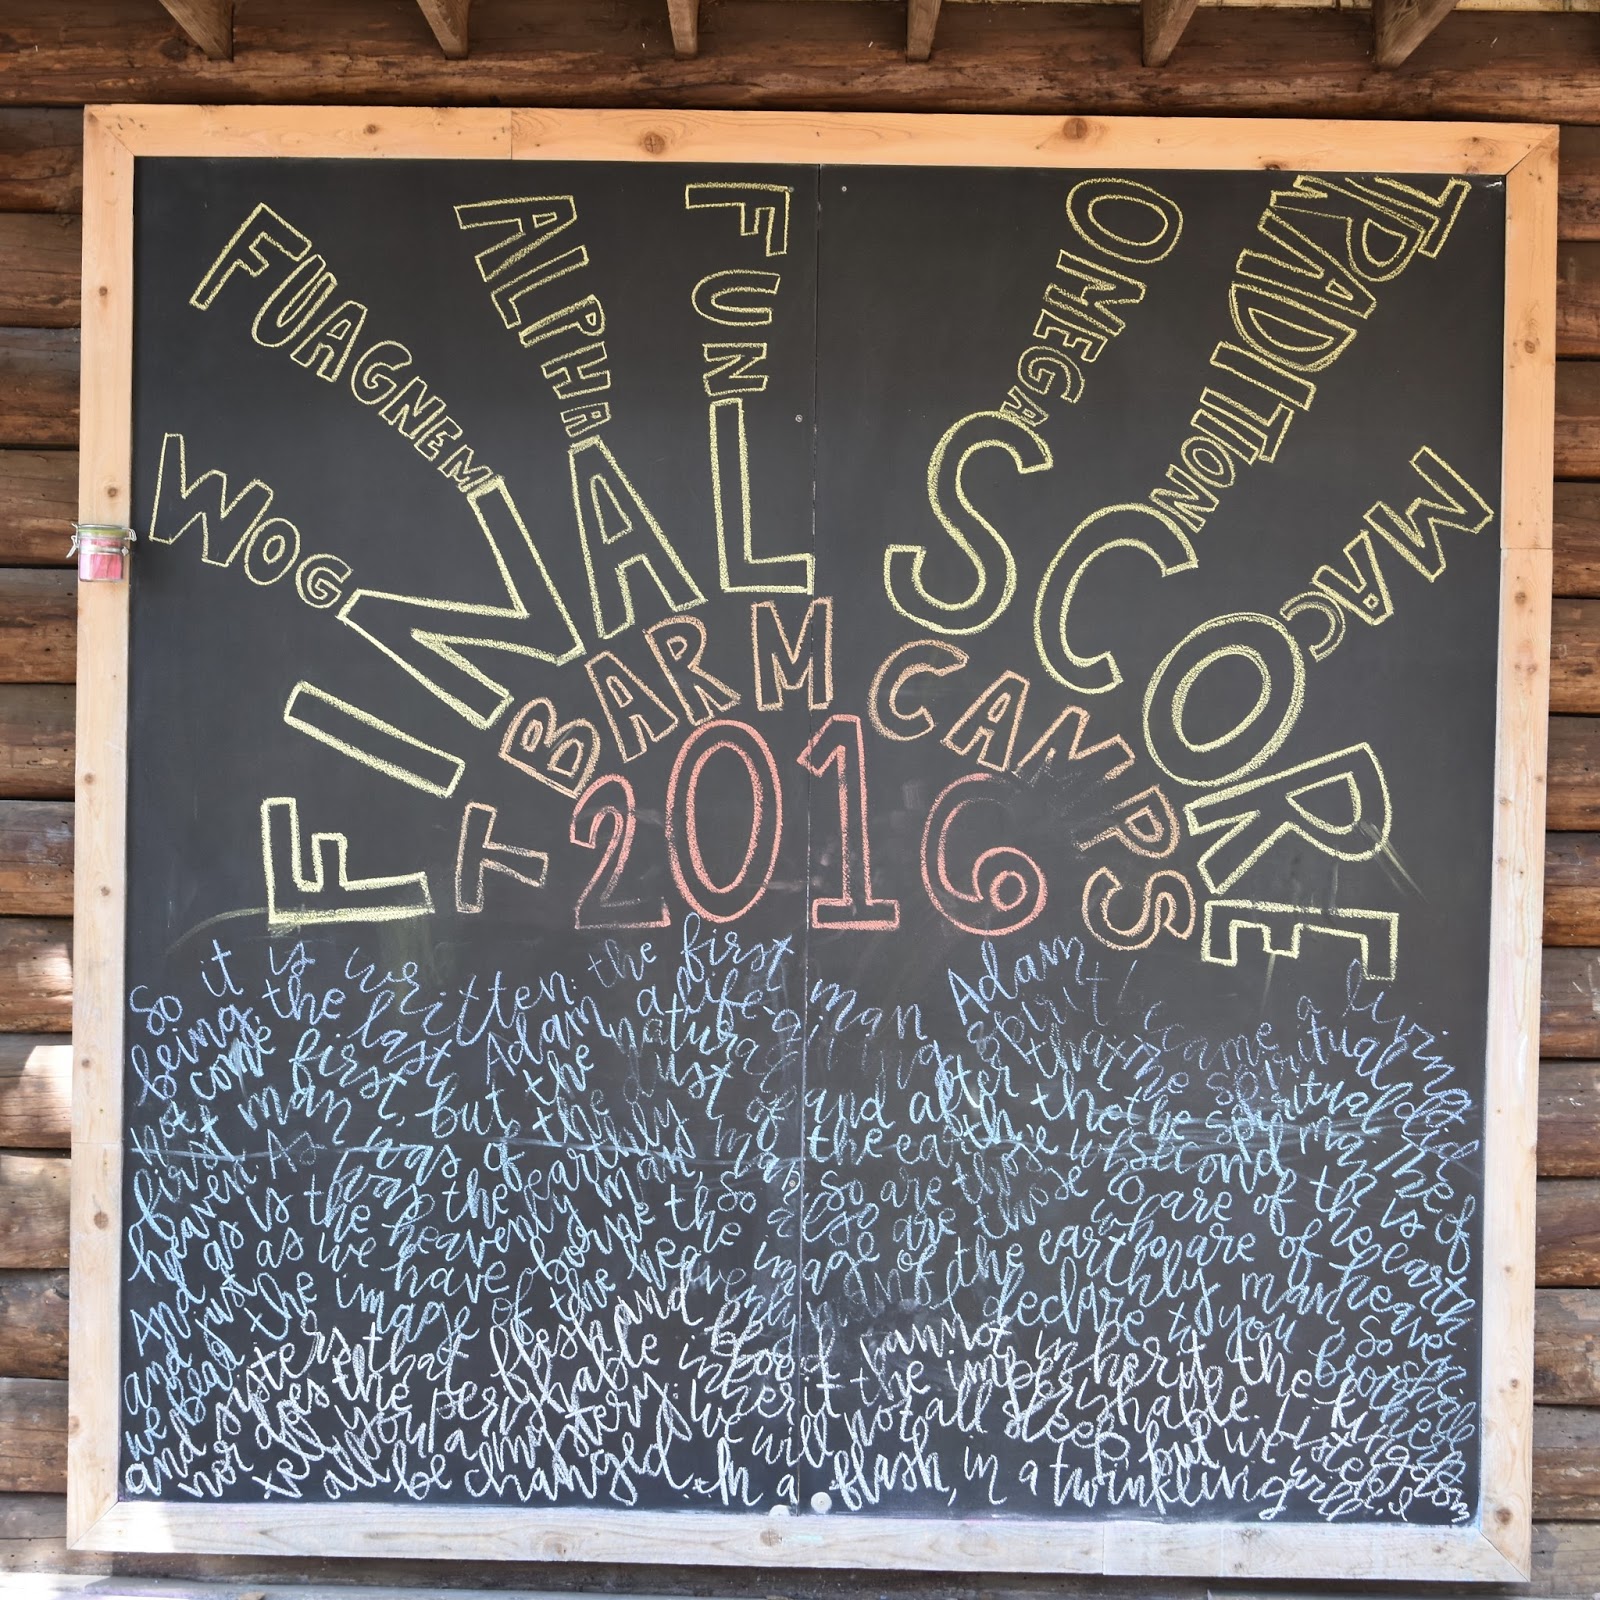 WOG
FUAGNEM
ALPHA
FUN
OMEGA
TRADITION
MAC
FINAL SCORE
T BAR M CAMPS
2016
So it is written: the first man Adam a livin
being; the last Adam, a life-giving spirit the spiritual did
not come first, but the natural and after that the spiritual The
first man was of the dust of the earth the second man is of
heaven As was the earthly man so are those who are of the earth
And as is the heavenly man so also are those who are of heaven
and just as we have borne the image of the earthly man so shall
we bear the image of the heavenly man I declare to you brothers
and sisters that flesh and blood cannot inherit the kingdom
nor does the perishable inherit the imperishable. Listen
tell you a mystery: we will not all sleep, but we will
all be changed. In a flash, in a twinkling